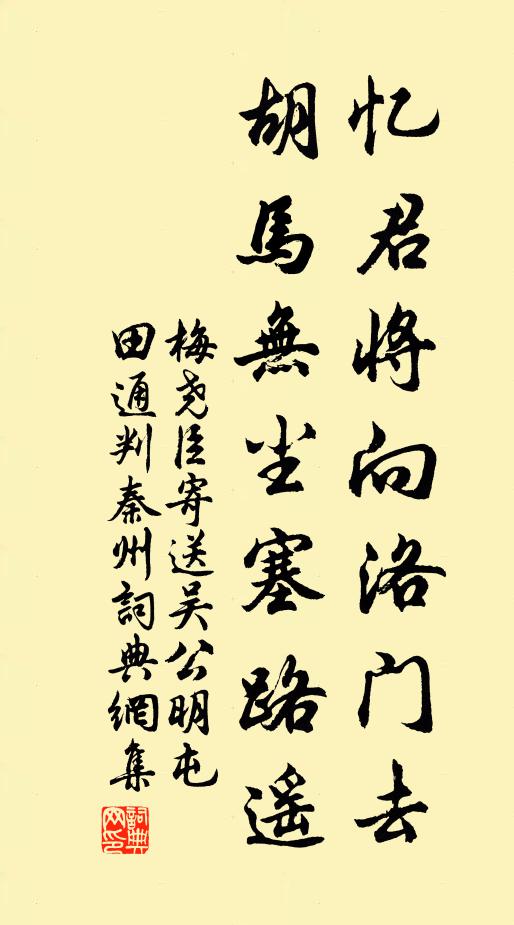 忆君将向洛门去
胡馬無尘塞路遥
梅尧臣寄送吴公明屯
田通判秦州詞典網集
詞典
网印